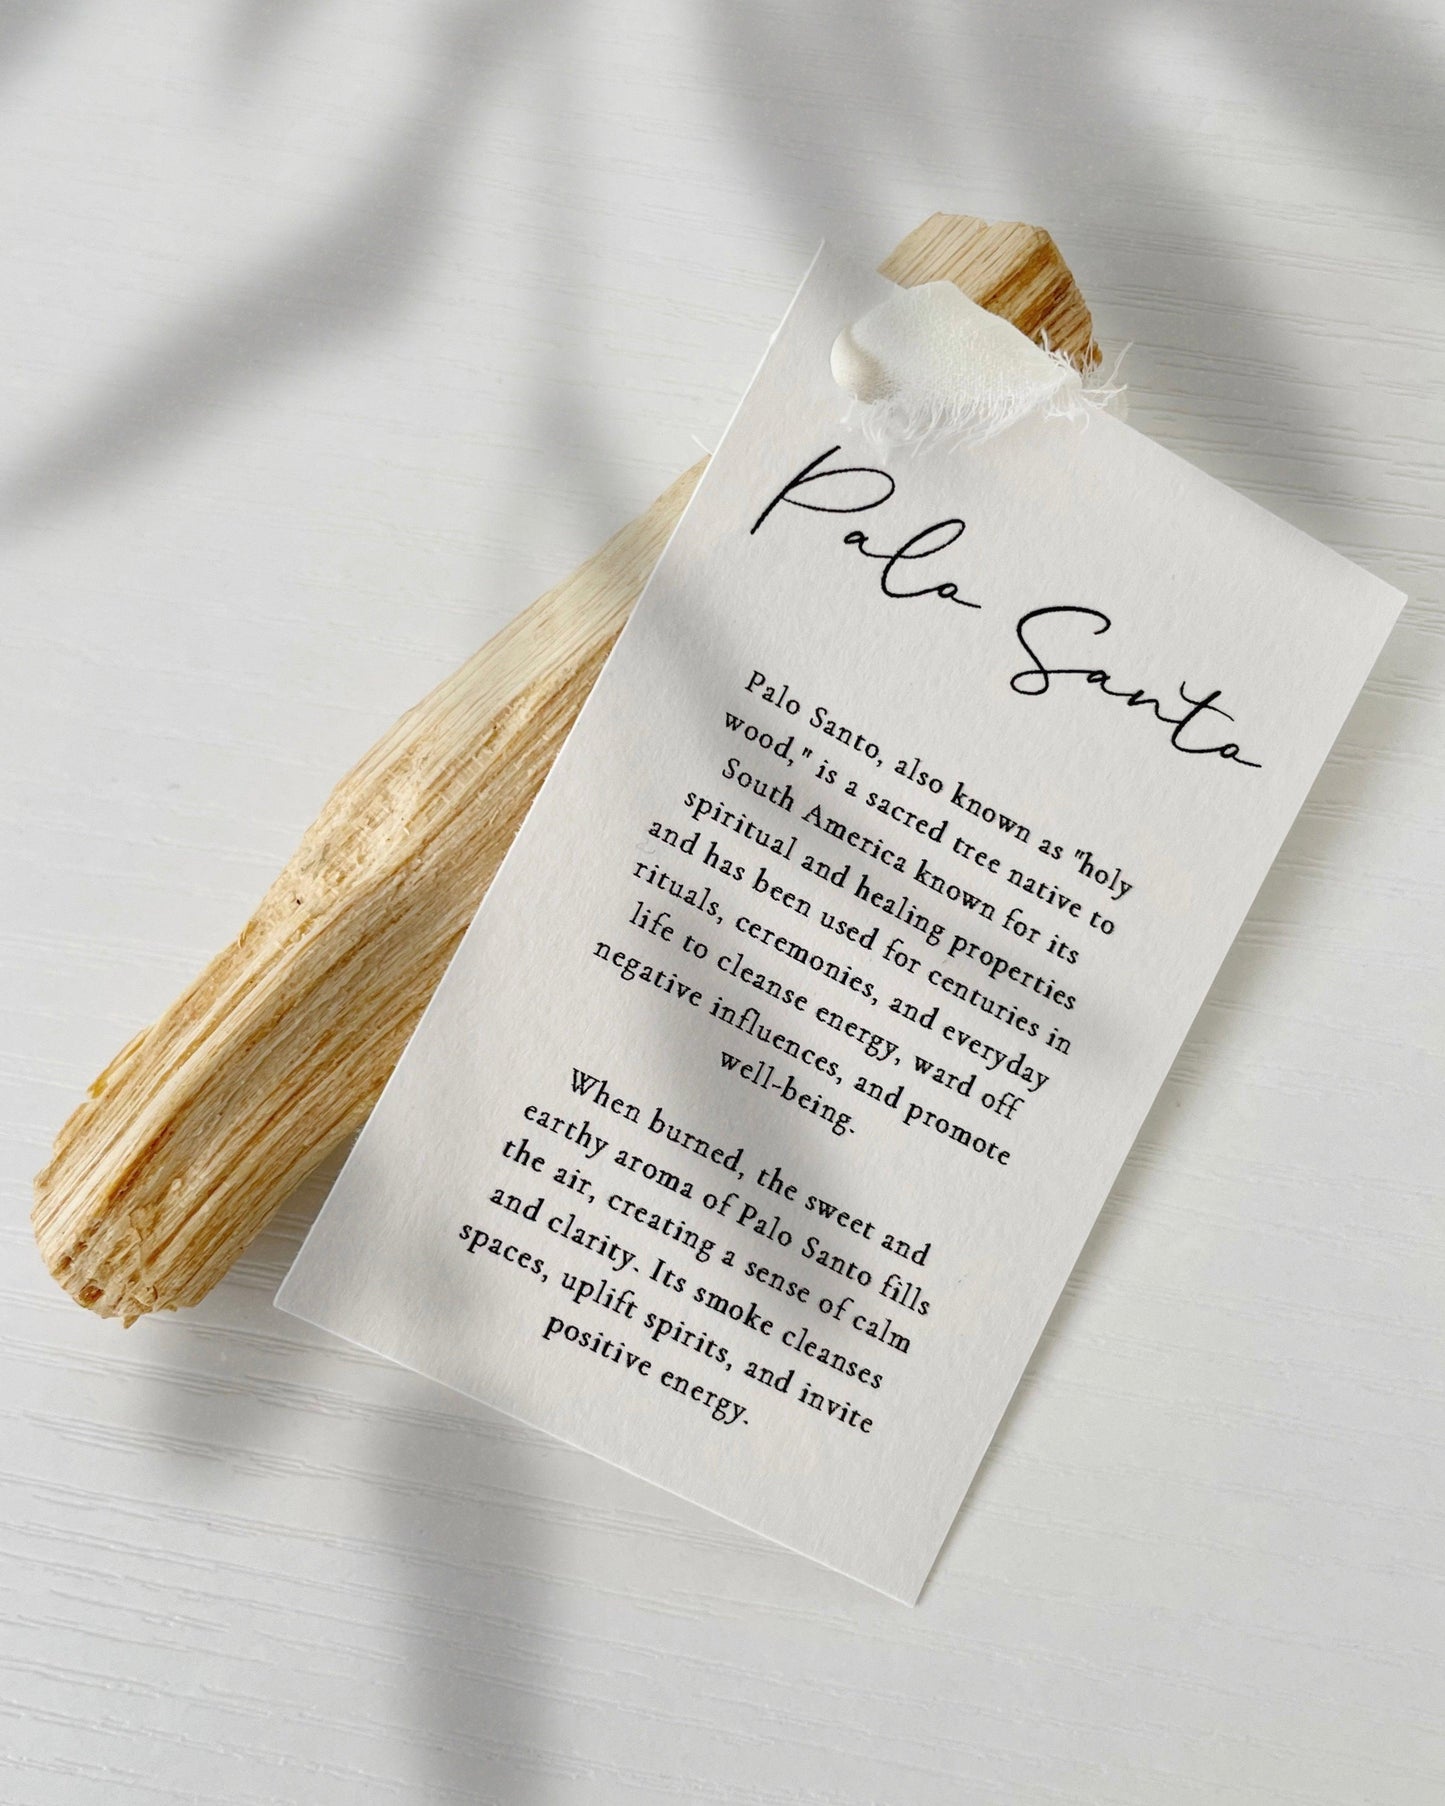 Palo Santo
Palo Santo, also known as "holy
wood," is a sacred tree native to
South America known for its
spiritual and healing properties
and has been used for centuries in
rituals, ceremonies, and everyday
life to cleanse energy, ward off
negative influences, and promote
well-being.
When burned, the sweet and
earthy aroma of Palo Santo fills
the air, creating a sense of calm
and clarity. Its smoke cleanses
spaces, uplift spirits, and invite
positive energy.